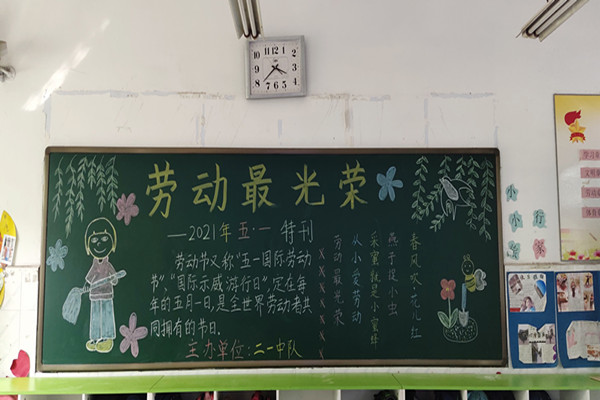 劳动最光荣
—2021年五·一特刊
劳动节又称"五一国际劳动
节"、"国际示威游行日"，定在每
年的五月一日，是全世界劳动者共
同拥有的节日。
主办单位：二一中队
春风吹，花儿红
燕子捉小虫
采蜜就是小蜜蜂
从小爱劳动
劳动最光荣